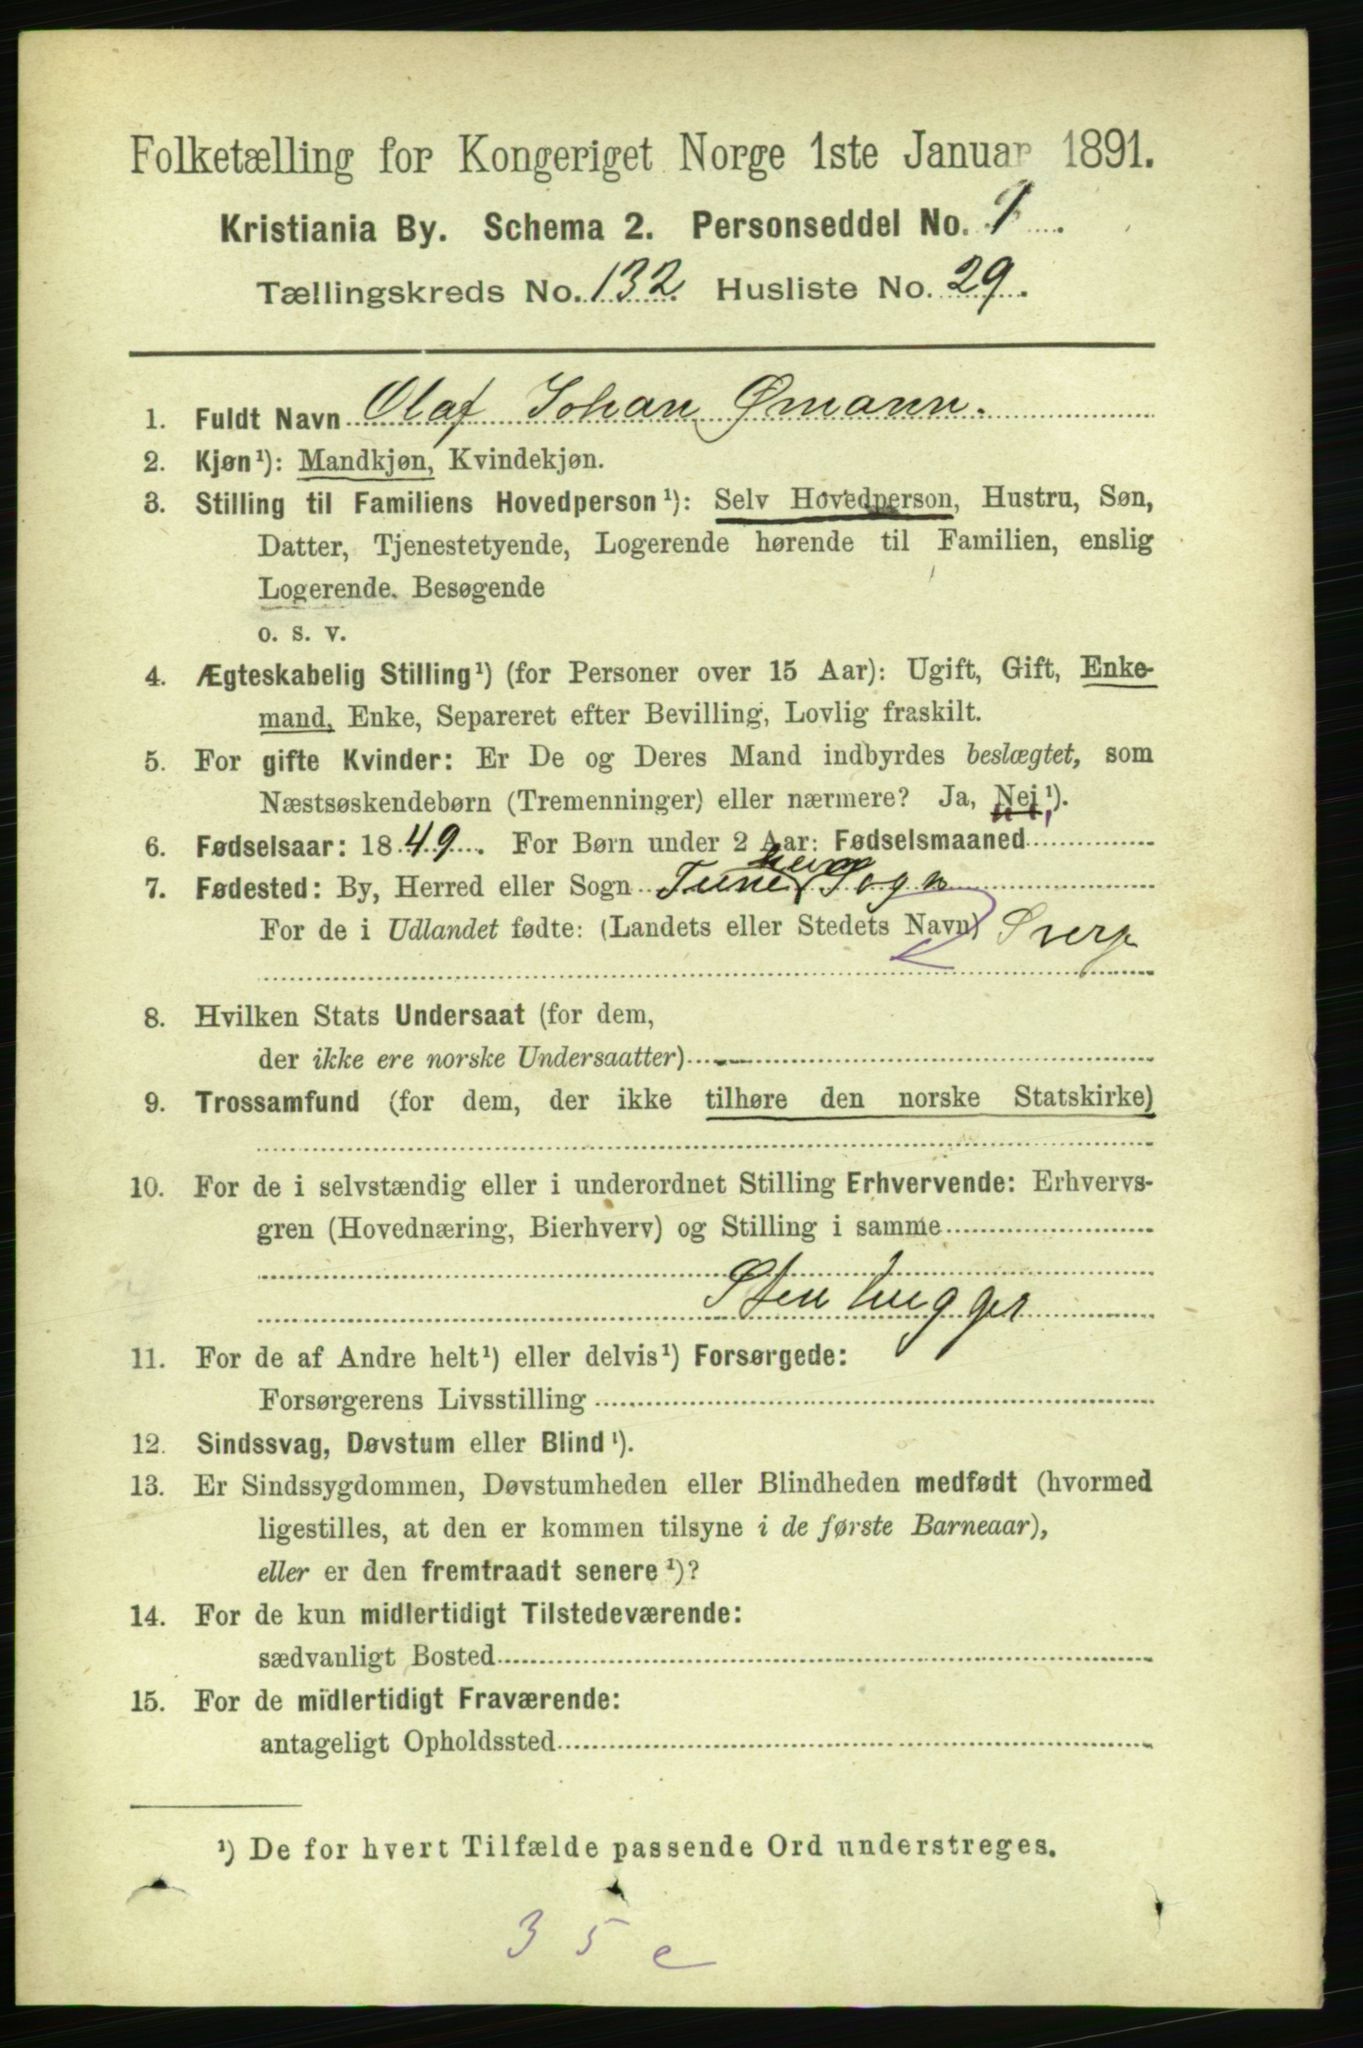 Folketælling for Kongeriget Norge 1ste Januar 1891.
Kristiania By. Schema 2. Personseddel No. 1.
Tællingskreds No. 132. Husliste No. 29.
1. Fuldt Navn Olaf Johan Ømann.
2. Kjøn¹): Mandkjøn, Kvindekjøn.
3. Stilling til Familiens Hovedperson¹): Selv Hovedperson, Hustru, Søn,
Datter, Tjenestetyende, Logerende hørende til Familien, enslig
Logerende. Besøgende
o. s. v.
4. Ægteskabelig Stilling¹) (for Personer over 15 Aar): Ugift, Gift, Enke-
mand, Enke, Separeret efter Bevilling, Lovlig fraskilt.
5. For gifte Kvinder: Er De og Deres Mand indbyrdes beslægtet, som
Næstsøskendebørn (Tremenninger) eller nærmere? Ja, Nej¹).
6. Fødselsaar: 1849. For Børn under 2 Aar: Fødselsmaaned
7. Fødested: By, Herred eller Sogn Tunehem Sogn
For de i Udlandet fødte: (Landets eller Stedets Navn) Sverg
8. Hvilken Stats Undersaat (for dem,
der ikke ere norske Undersaatter)
9. Trossamfund (for dem, der ikke tilhøre den norske Statskirke)
10. For de i selvstændig eller i underordnet Stilling Erhvervende: Erhvervs-
gren (Hovednæring, Bierhverv) og Stilling i samme
Stenhugger
11. For de af Andre helt¹) eller delvis¹) Forsørgede:
Forsørgerens Livsstilling
12. Sindssvag, Døvstum eller Blind¹).
13. Er Sindssygdommen, Døvstumheden eller Blindheden medfødt (hvormed
ligestilles, at den er kommen tilsyne i de første Barneaar),
eller er den fremtraadt senere¹)?
14. For de kun midlertidigt Tilstedeværende:
sædvanligt Bosted
15. For de midlertidigt Fraværende:
antageligt Opholdssted
¹) De for hvert Tilfælde passende Ord understreges.
35e